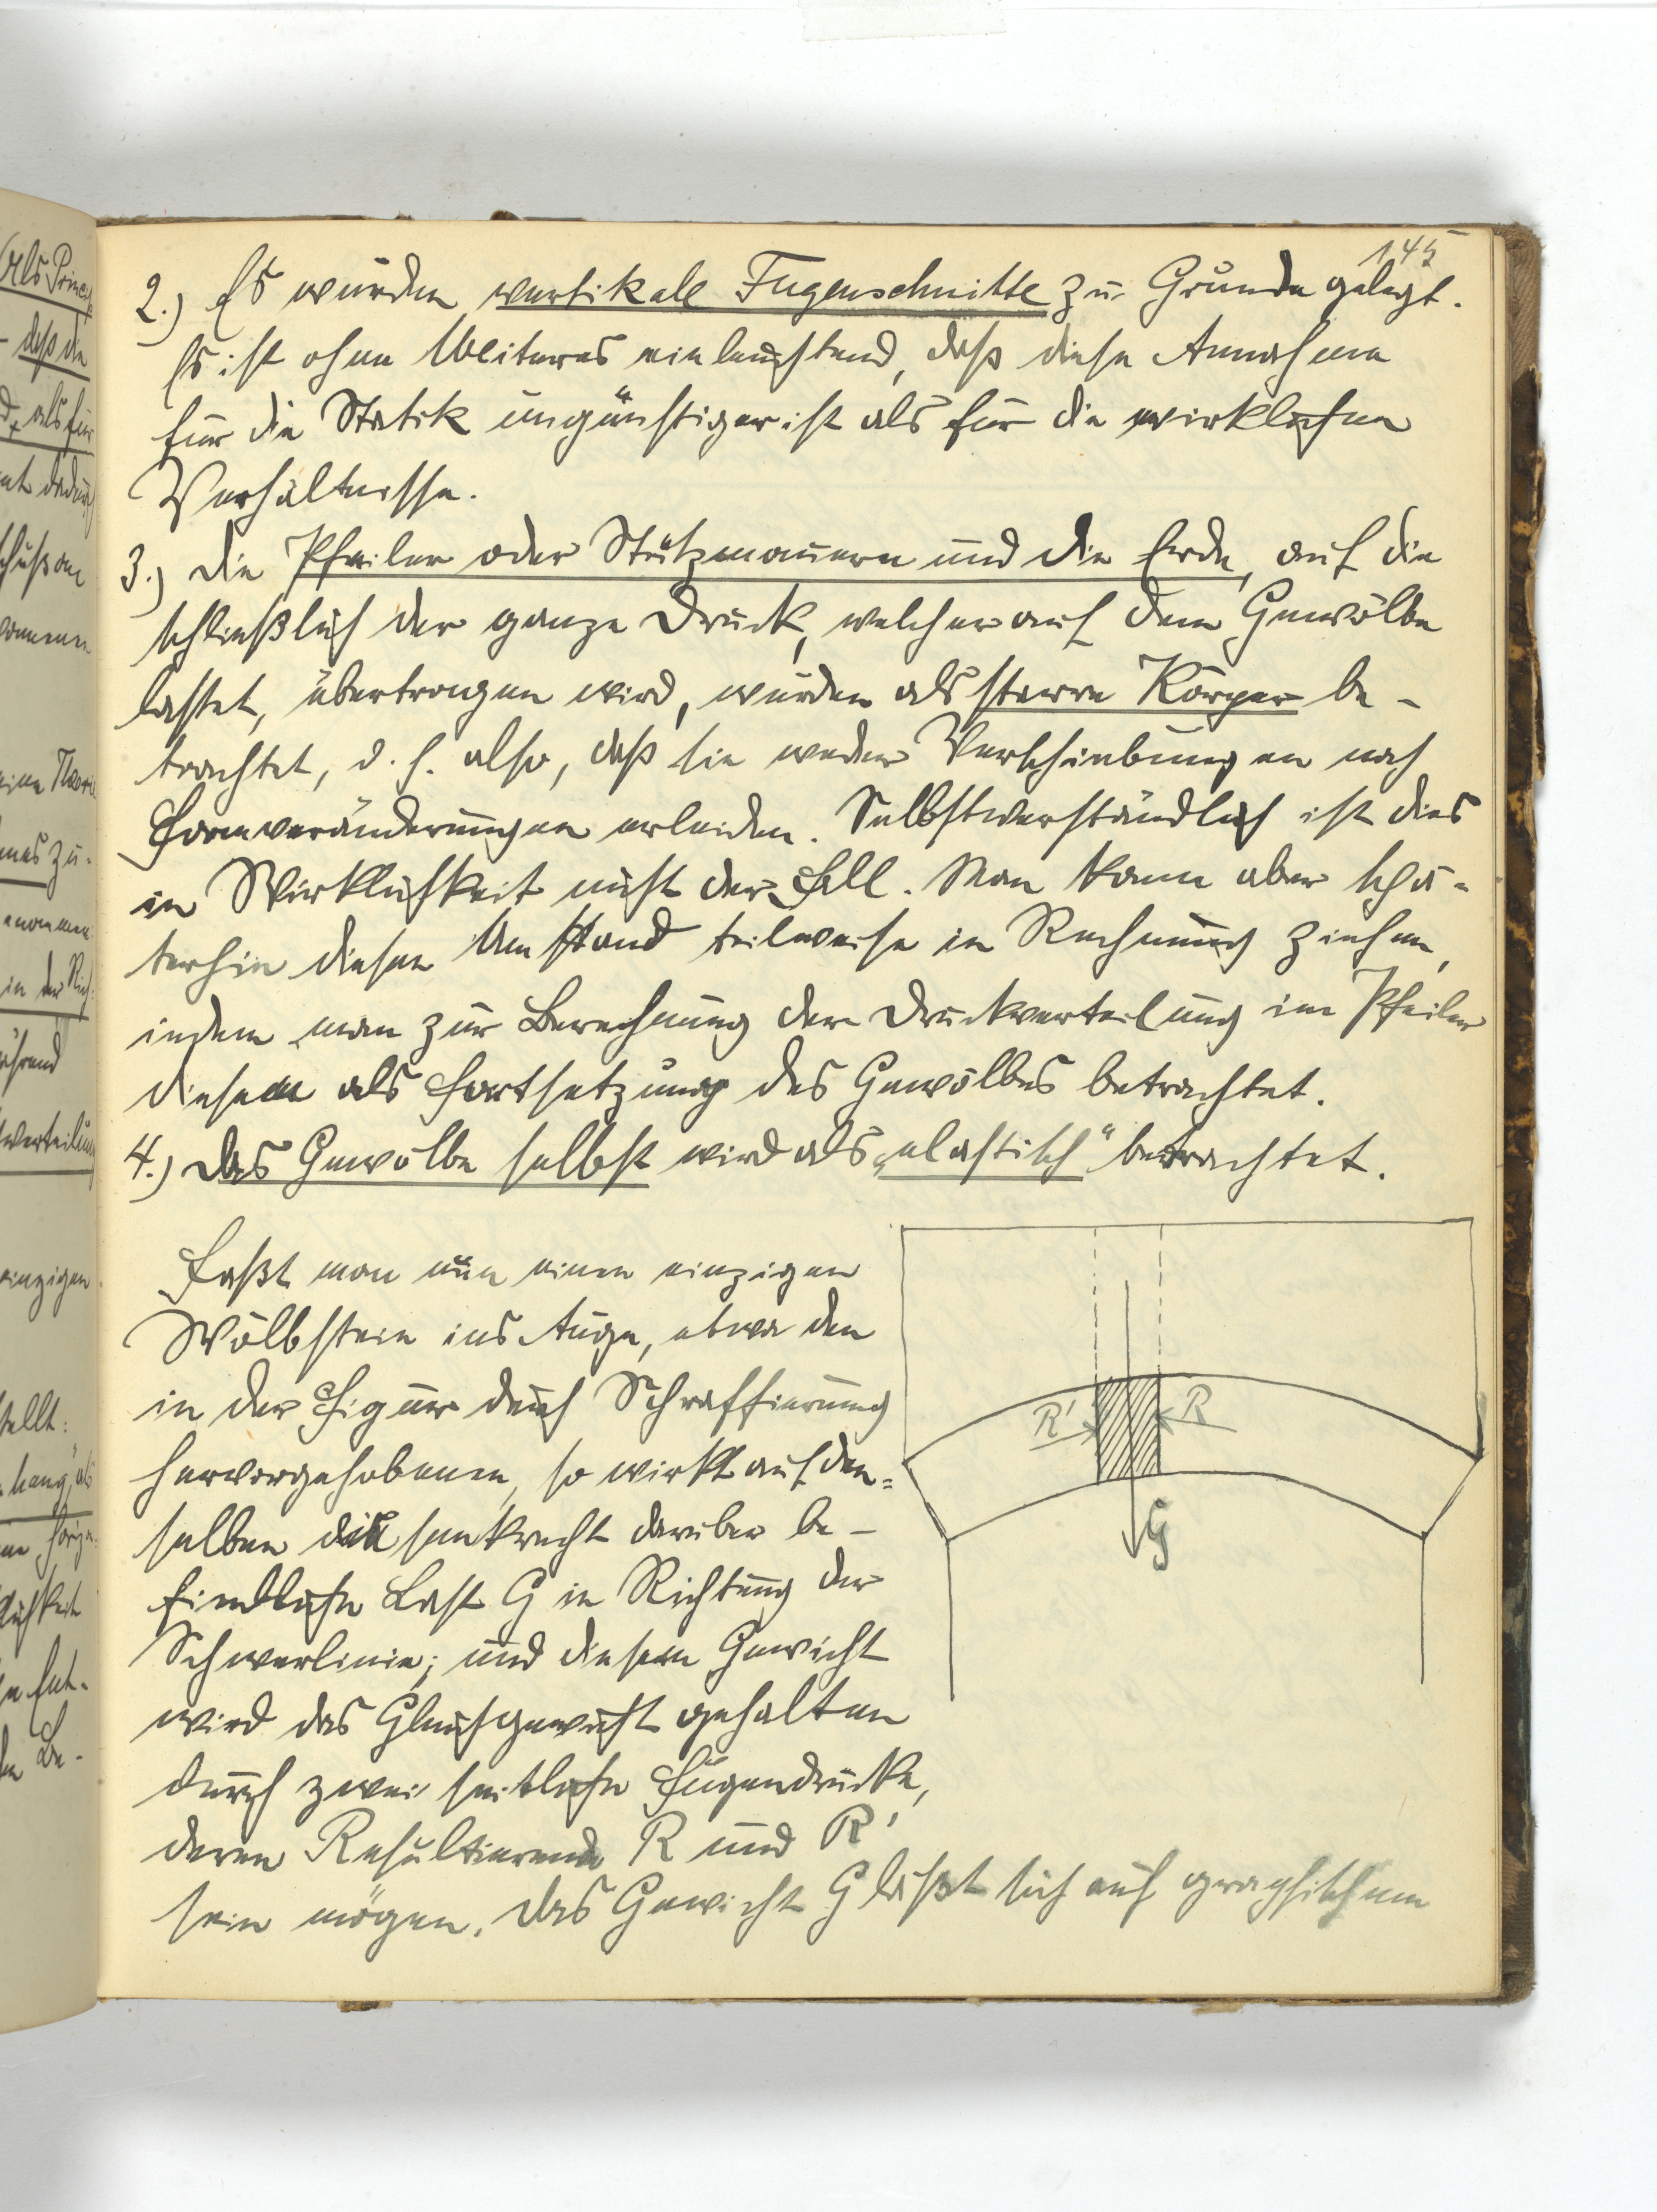 145
2.) Es wurden vertikale Fugenschnitte zu Grunde gelegt.
Es ist ohne Weiteres einleuchtend, daß diese Annahme
für die Statik ungünstiger ist als für die wirklichen
Verhältnisse.
3.) Die Pfeiler oder Stützmauern und die Erde, auf die
schließlich der ganze Druck, welcher auf dem Gewölbe
lastet, übertragen wird, wurden als starre Körper be-
trachtet, d. h. also, daß sie weder Verschiebungen noch
Formveränderungen erleiden. Selbstverständlich ist dies
in Wirklichkeit nicht der Fall. Man kann aber spä-
terhin diesen Umstand teilweise in Rechnung ziehen,
indem man zur Berechnung der Druckverteilung im Pfeiler
diesen als Fortsetzung des Gewölbes betrachtet.
4.) Das Gewölbe selbst wird als „elastisch" betrachtet.
Faßt man nun einen einzigen
Wölbstein ins Auge, etwa den
in der Figur durch Schraffierung
hervorgehobenen, so wirkt auf den-
selben die senkrecht darüber be-
findliche Last G in Richtung der
Schwerlinie; und diesem Gewicht
wird das Gleichgewicht gehalten
durch zwei seitliche Fugendrücke,
deren Resultierende R und R'
sein mögen. Das Gewicht G läßt sich auf graphischem
R'
R
G